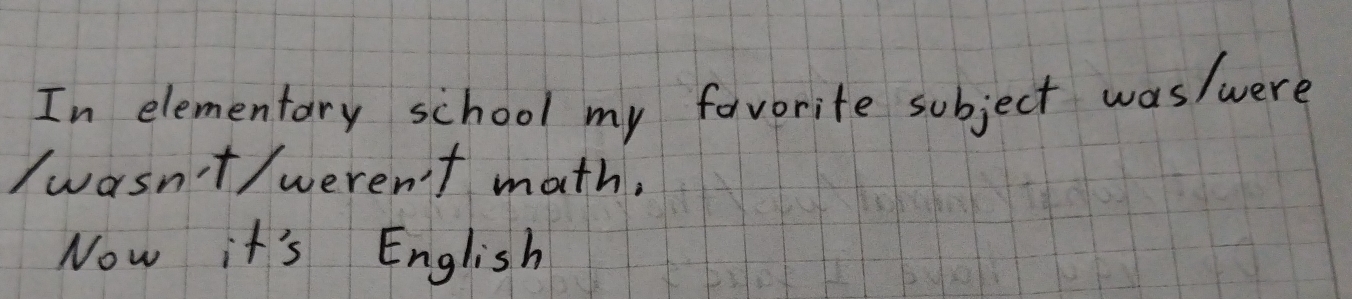 In elementary school my favorite subject was/were
/wasn't/weren't math.
Now it's English